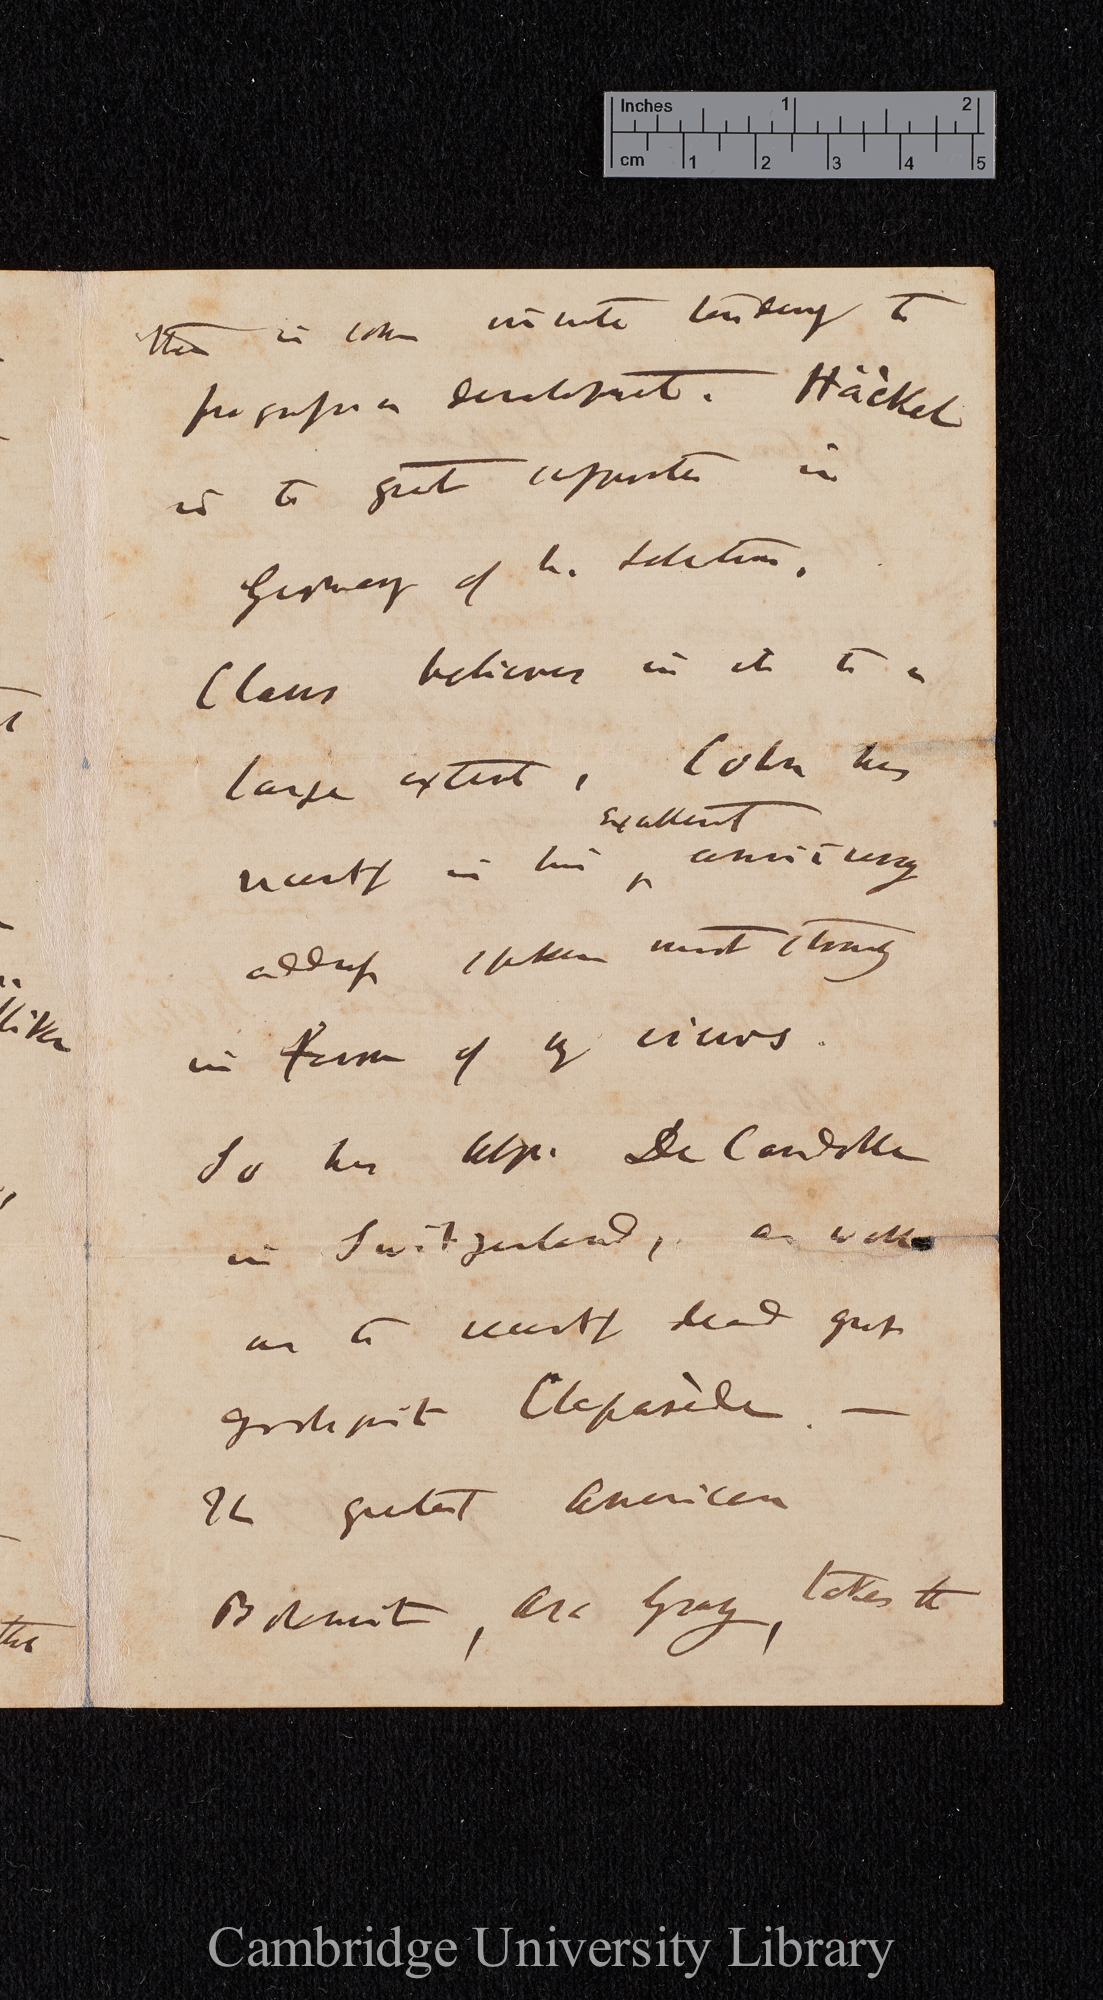 Inches 1 2
cm 1 2 3 4 5
there is some innate tendency to
progressive development. Häckel
is the great supporter in
Germany of n. selection.
Claus believes in it to a
large extent, Cohn has
excellent
recently in his ^ anniversary
address spoken most strongly
in favour of my views.
So has Alph. De Candolle
in Switzerland, as well
as the recently dead great
zoologist Claparède. —
The greatest American
Botanist, Asa Gray, takes the
lliker
the
Cambridge University Library